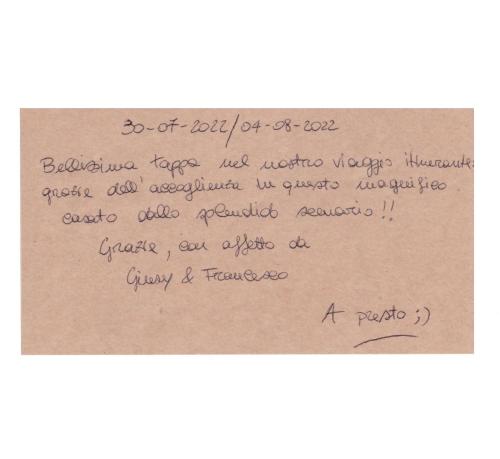 30-07-2022/04-08-2022
Bellissima tappa nel nostro viaggio itinerante.
grazie dell'accoglienza in questo magnifico
casato dallo splendido scenario!!
Grazie, con affetto da
Giusy & Francesco
A presto ;)